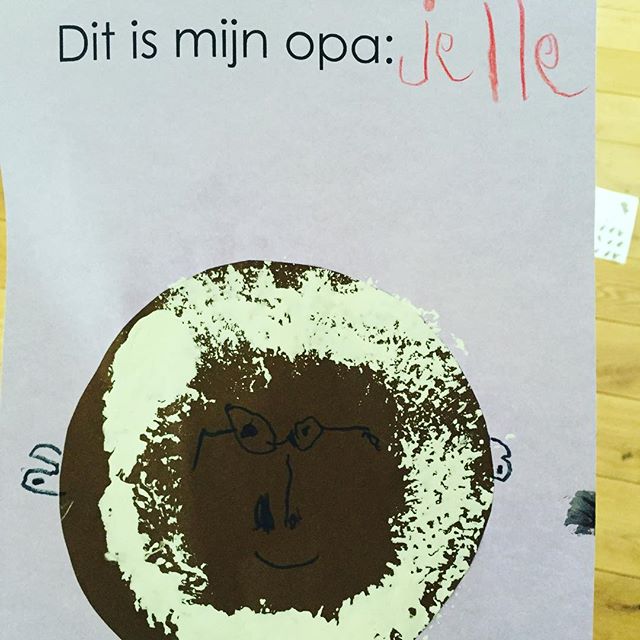 Dit is mijn opa: jelle